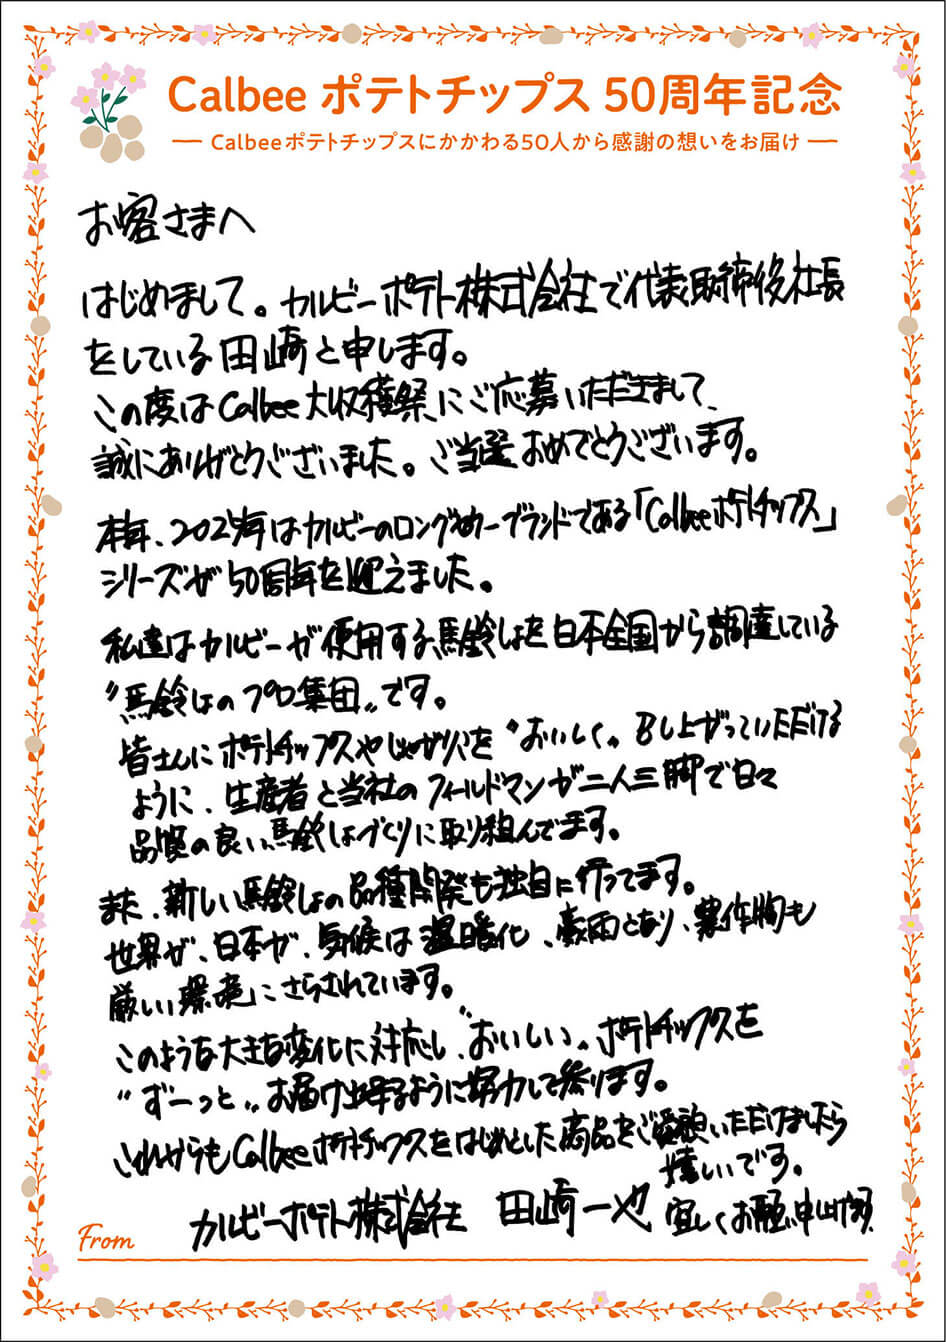 Calbee ポテトチップス 50周年記念
Calbeeポテトチップスにかかわる50人から感謝の想いをお届け
お客さまへ
はじめまして。カルビーポテト株式会社で代表取締役社長
をしている田崎と申します。
この度はCalbee大収穫祭にご応募いただきまして、
誠にありがとうございました。ご当選おめでとうございます。
本年、2025年はカルビーのロングセラーブランドである「Calbeeポテトチップス」
シリーズが50周年を迎えました。
私達はカルビーが使用する馬鈴しょを日本全国から調達している
“馬鈴しょのプロ集団”です。
皆さんにポテトチップスやじゃがりこを“おいしく”召し上がっていただける
ように、生産者と当社のフィールドマンが二人三脚で日々
品質の良い馬鈴しょづくりに取り組んでます。
また、新しい馬鈴しょの品種開発も独自に行ってます。
世界が、日本が、気候は温暖化、豪雨となり、農作物も
厳しい環境にさらされています。
このような大きな変化に対応し“おいしい”ポテトチップスを
“ずーっと”お届け出来るように努力して参ります。
これからもCalbeeポテトチップスをはじめとした商品をご愛顧いただけましたら
嬉しいです。
宜しくお願い申し上げます。
カルビーポテト株式会社 田崎一也
From